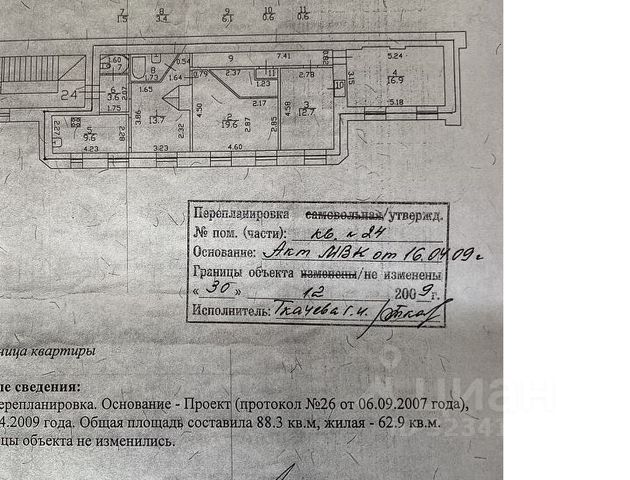 7 8 9 10 11
1.5 3.4 6.1 0.6 0.6
1.60 0.54 9 7.41 0.82 5.24
7 1.7 8 1.73 1.64 0.79 2.37 11 2.78 4
24 6 1.23 10 3.15 16.9
3.6 2.07 1.65 4.50 2.17 4.58 3 5.18
1.75 3.86 1 2 12.7
2.27 5 2.28 13.7 2.32 19.6 2.87 2.85
9.6
4.23 3.23 4.60
Перепланировка самовольная/утвержд.
№ пом. (части): кв. № 24
Основание: Акт МВК от 16.04.09 г
Границы объекта изменены/не изменены
« 30 » 12 2009 г.
Исполнитель: Ткачева Г.И.
ница квартиры
ые сведения:
ерепланировка. Основание - Проект (протокол №26 от 06.09.2007 года),
4.2009 года. Общая площадь составила 88.3 кв.м, жилая - 62.9 кв.м.
цы объекта не изменились.
циан